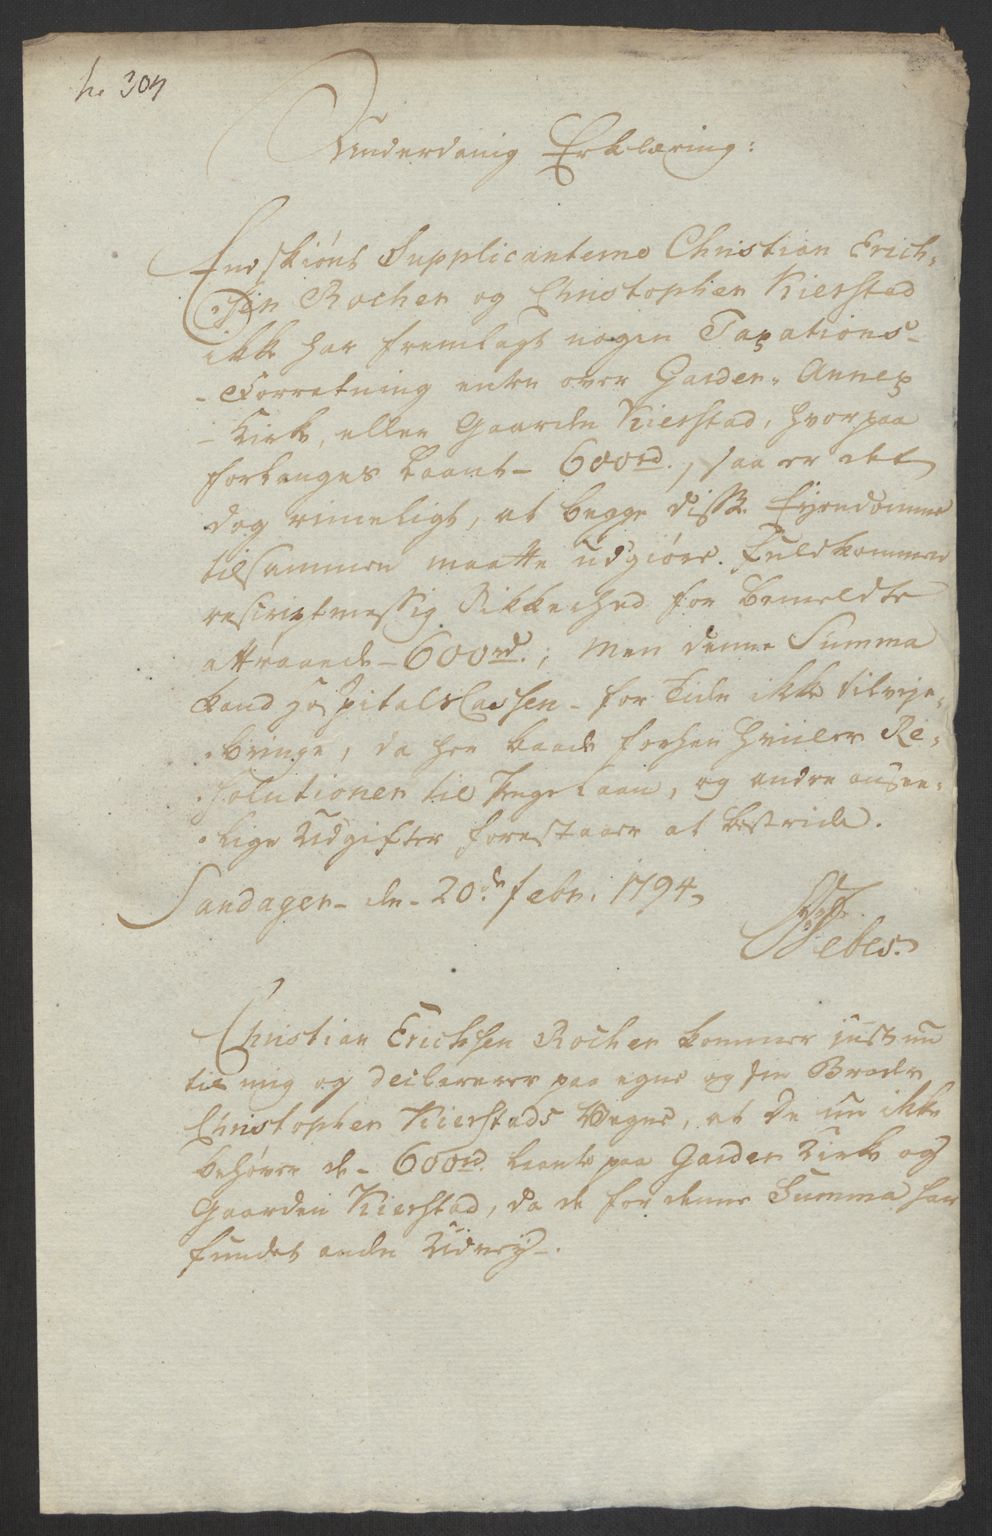 No 304
Underdanig Erklæring:
Endskiönt Supplicanterne Christian Erich-
sen Rocher og Christopher Kierstad
ikke har fremlagt nogen Taxations-
-Forretning enten over Garder-Annex
-Kirke, eller Gaarden Kierstad, hvorpaa
forlanges Laant- 600rd., saa er det
dog rimeligt, at begge disse Eijendomme
tilsammen maatte udgiöre fuldkommen
rescriptmessig Sikkerhed for bemeldte
attraaede-600rd.; Men denne Summa
kand HospitalsCassen-for Tiden ikke tilveje-
-bringe, da her baade forhen hviiler Re-
-solutioner til Penge Laan, og andre ansee-
-lige Udgifter forestaaer at bestride.
Sandager- den- 20de febr. 1794
Bebes.
Christian Erichsen Rocher kommer just nu
til mig og declarerer paa egne og sin Broder
Christopher Kierstads Vegne, at De nu ikke
behöver de- 600rd. laante paa Garder Kirke og
Gaarden Kierstad, da de for denne Summa har
fundet anden Udveij-.